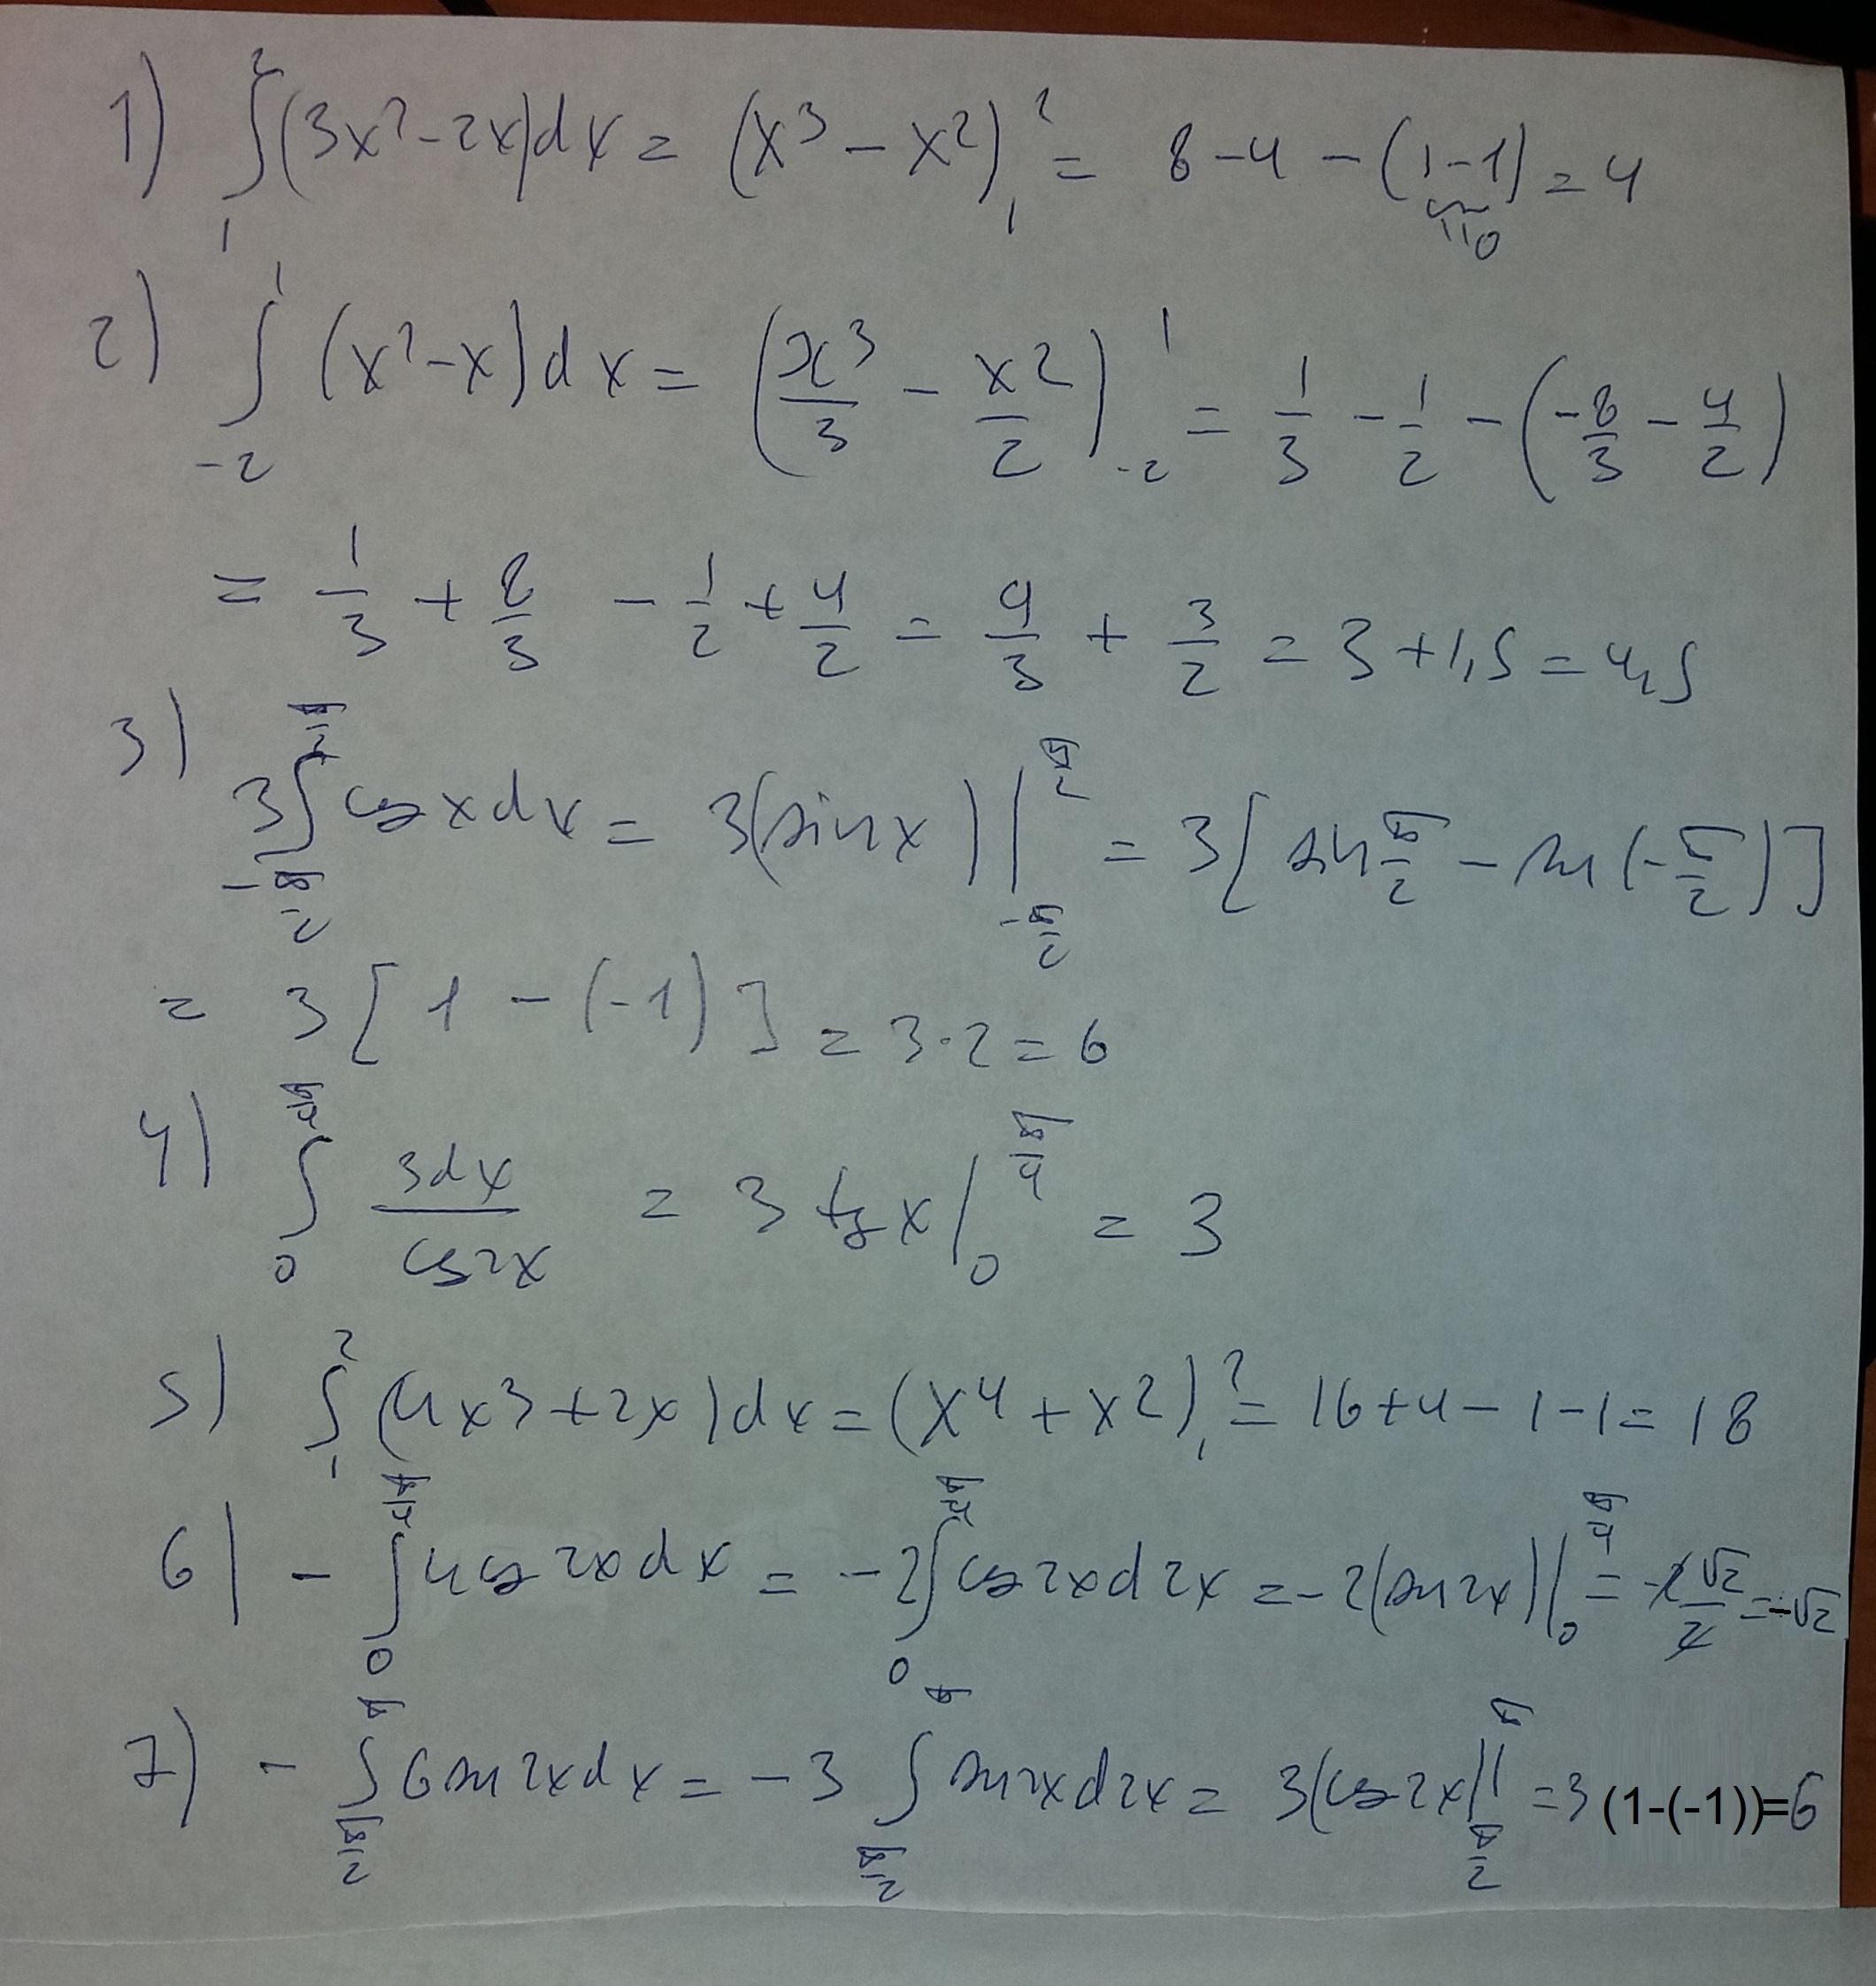 1) ∫₁² (3x²-2x)dx = (x³ - x²)₁² = 8-4-(1-1) = 4
"0
2) ∫₋₂¹ (x²-x)dx = (x³/3 - x²/2)₋₂¹ = 1/3 - 1/2 - (-8/3 - 4/2)
= 1/3 + 8/3 - 1/2 + 4/2 = 9/3 + 3/2 = 3+1,5 = 4,5
3) 3∫_{-π/2}^{π/2} cos x dx = 3(sin x)|_{-π/2}^{π/2} = 3[sin π/2 - sin(-π/2)]
= 3[1 - (-1)] = 3·2 = 6
4) ∫₀^{π/4} 3dx/cos2x = 3 tg x|₀^{π/4} = 3
5) ∫₁² (4x3+2x)dx = (x4+x2)₁² = 16+4-1-1 = 18
6) -∫₀^{π/4} 4cos 2x dx = -2∫₀^{π/4} cos 2x d2x = -2(sin 2x)|₀^{π/4} = -2√2/2 = -√2
7) -∫_{π/2}^{π} 6 sin 2x dx = -3 ∫_{π/2}^{π} sin 2x d2x = 3(cos 2x)|_{π/2}^{π} = 3(1-(-1))=6